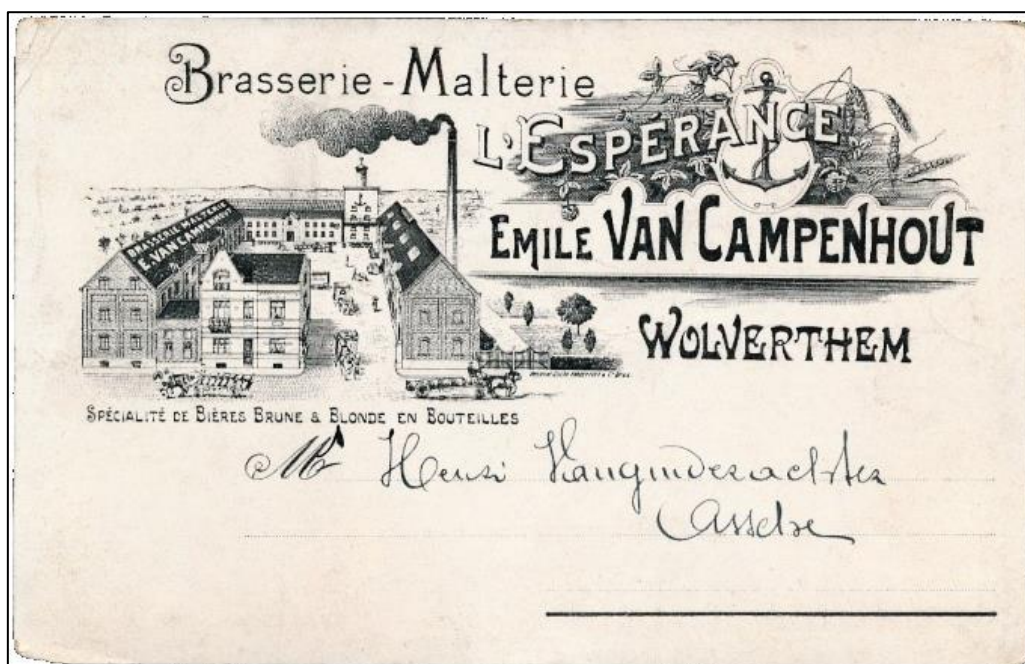 Brasserie - Malterie
L'ESPÉRANCE
EMILE VAN CAMPENHOUT
WOLVERTHEM
BRASSERIE MALTERIE
E. VAN CAMPENHOUT
SPÉCIALITÉ DE BIÈRES BRUNE & BLONDE EN BOUTEILLES
Mr Henri Vanginderachter
Assche